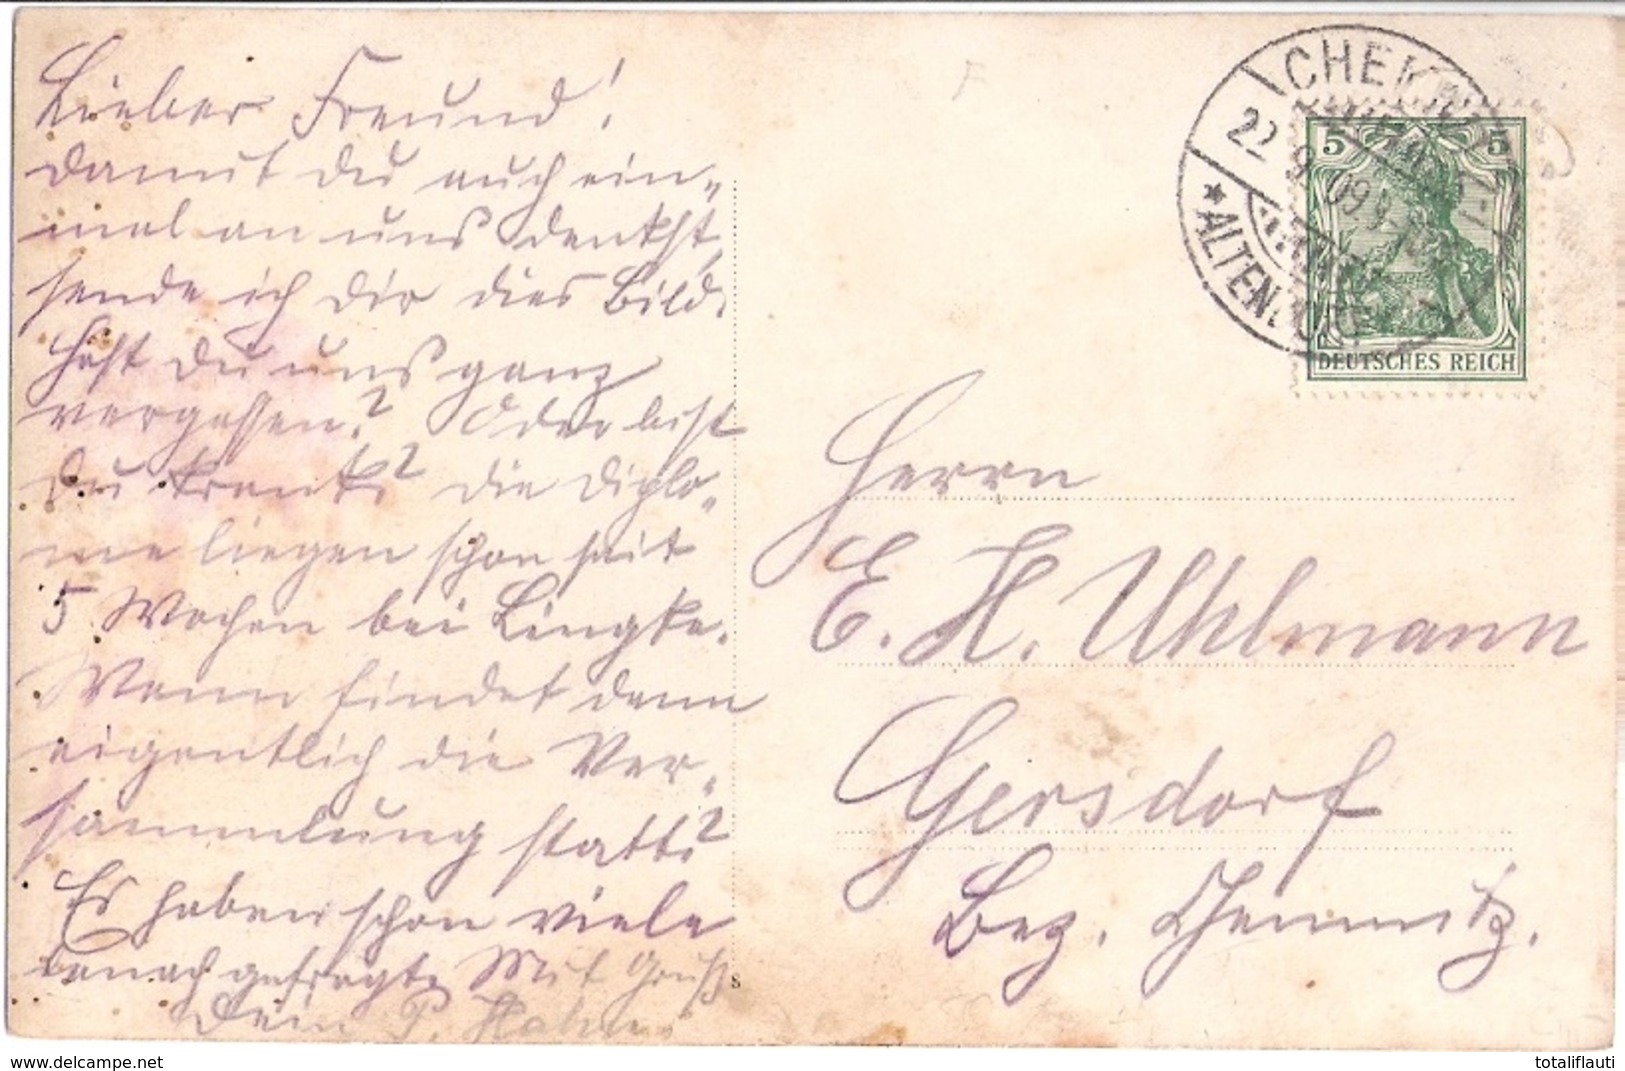 Lieber Freund!
Damit Du auch ein=
mal an uns denkst,
sende ich Dir dies Bild.
Hast Du uns ganz
vergessen? Oder bist
Du krank? Die Diplo=
me liegen schon seit
5 Wochen bei Lingke.
Wann findet denn
eigentlich die Ver=
sammlung statt?
Es haben schon viele
danach gefragt. Mit Gruß
Dein P. Hahn
CHEMNITZ
22.9.09.9
*ALTENDORF
5 5
DEUTSCHES REICH
Herrn
E. H. Uhlmann
Gersdorf
Bez. Chemnitz.
www.delcampe.net
totaliflauti